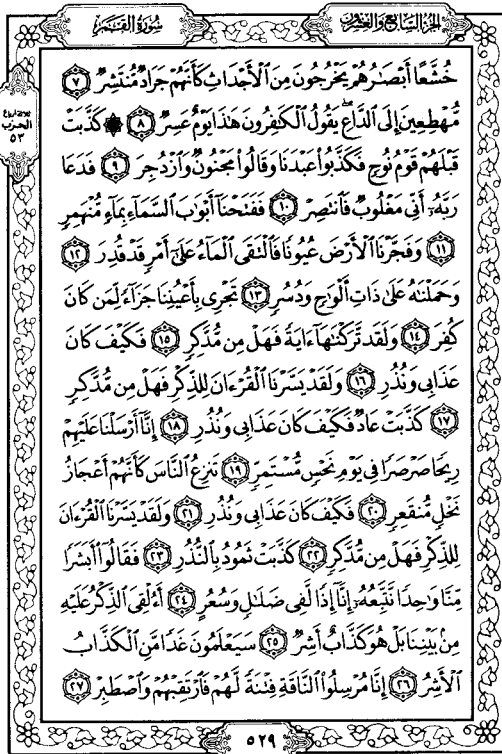 الجزء السابع والعشرون
سورة القمر
خُشَّعًا أَبْصَٰرُهُمْ يَخْرُجُونَ مِنَ ٱلْأَجْدَاثِ كَأَنَّهُمْ جَرَادٌ مُّنتَشِرٌ ٧
مُّهْطِعِينَ إِلَى ٱلدَّاعِ ۖ يَقُولُ ٱلْكَٰفِرُونَ هَٰذَا يَوْمٌ عَسِرٌ ٨ ۞ كَذَّبَتْ
قَبْلَهُمْ قَوْمُ نُوحٍ فَكَذَّبُوا۟ عَبْدَنَا وَقَالُوا۟ مَجْنُونٌ وَٱزْدُجِرَ ٩ فَدَعَا
رَبَّهُۥٓ أَنِّى مَغْلُوبٌ فَٱنتَصِرْ ١٠ فَفَتَحْنَآ أَبْوَٰبَ ٱلسَّمَآءِ بِمَآءٍ مُّنْهَمِرٍ
١١ وَفَجَّرْنَا ٱلْأَرْضَ عُيُونًا فَٱلْتَقَى ٱلْمَآءُ عَلَىٰٓ أَمْرٍ قَدْ قُدِرَ ١٢
وَحَمَلْنَٰهُ عَلَىٰ ذَاتِ أَلْوَٰحٍ وَدُسُرٍ ١٣ تَجْرِى بِأَعْيُنِنَا جَزَآءً لِّمَن كَانَ
كُفِرَ ١٤ وَلَقَد تَّرَكْنَٰهَآ ءَايَةً فَهَلْ مِن مُّدَّكِرٍ ١٥ فَكَيْفَ كَانَ
عَذَابِى وَنُذُرِ ١٦ وَلَقَدْ يَسَّرْنَا ٱلْقُرْءَانَ لِلذِّكْرِ فَهَلْ مِن مُّدَّكِرٍ
١٧ كَذَّبَتْ عَادٌ فَكَيْفَ كَانَ عَذَابِى وَنُذُرِ ١٨ إِنَّآ أَرْسَلْنَا عَلَيْهِمْ
رِيحًا صَرْصَرًا فِى يَوْمِ نَحْسٍ مُّسْتَمِرٍّ ١٩ تَنزِعُ ٱلنَّاسَ كَأَنَّهُمْ أَعْجَازُ
نَخْلٍ مُّنقَعِرٍ ٢٠ فَكَيْفَ كَانَ عَذَابِى وَنُذُرِ ٢١ وَلَقَدْ يَسَّرْنَا ٱلْقُرْءَانَ
لِلذِّكْرِ فَهَلْ مِن مُّدَّكِرٍ ٢٢ كَذَّبَتْ ثَمُودُ بِٱلنُّذُرِ ٢٣ فَقَالُوٓا۟ أَبَشَرًا
مِّنَّا وَٰحِدًا نَّتَّبِعُهُۥٓ إِنَّآ إِذًا لَّفِى ضَلَٰلٍ وَسُعُرٍ ٢٤ أَءُلْقِىَ ٱلذِّكْرُ عَلَيْهِ
مِنۢ بَيْنِنَا بَلْ هُوَ كَذَّابٌ أَشِرٌ ٢٥ سَيَعْلَمُونَ غَدًا مَّنِ ٱلْكَذَّابُ
ٱلْأَشِرُ ٢٦ إِنَّا مُرْسِلُوا۟ ٱلنَّاقَةِ فِتْنَةً لَّهُمْ فَٱرْتَقِبْهُمْ وَٱصْطَبِرْ ٢٧
الحزب
٥٣
٥٢٩